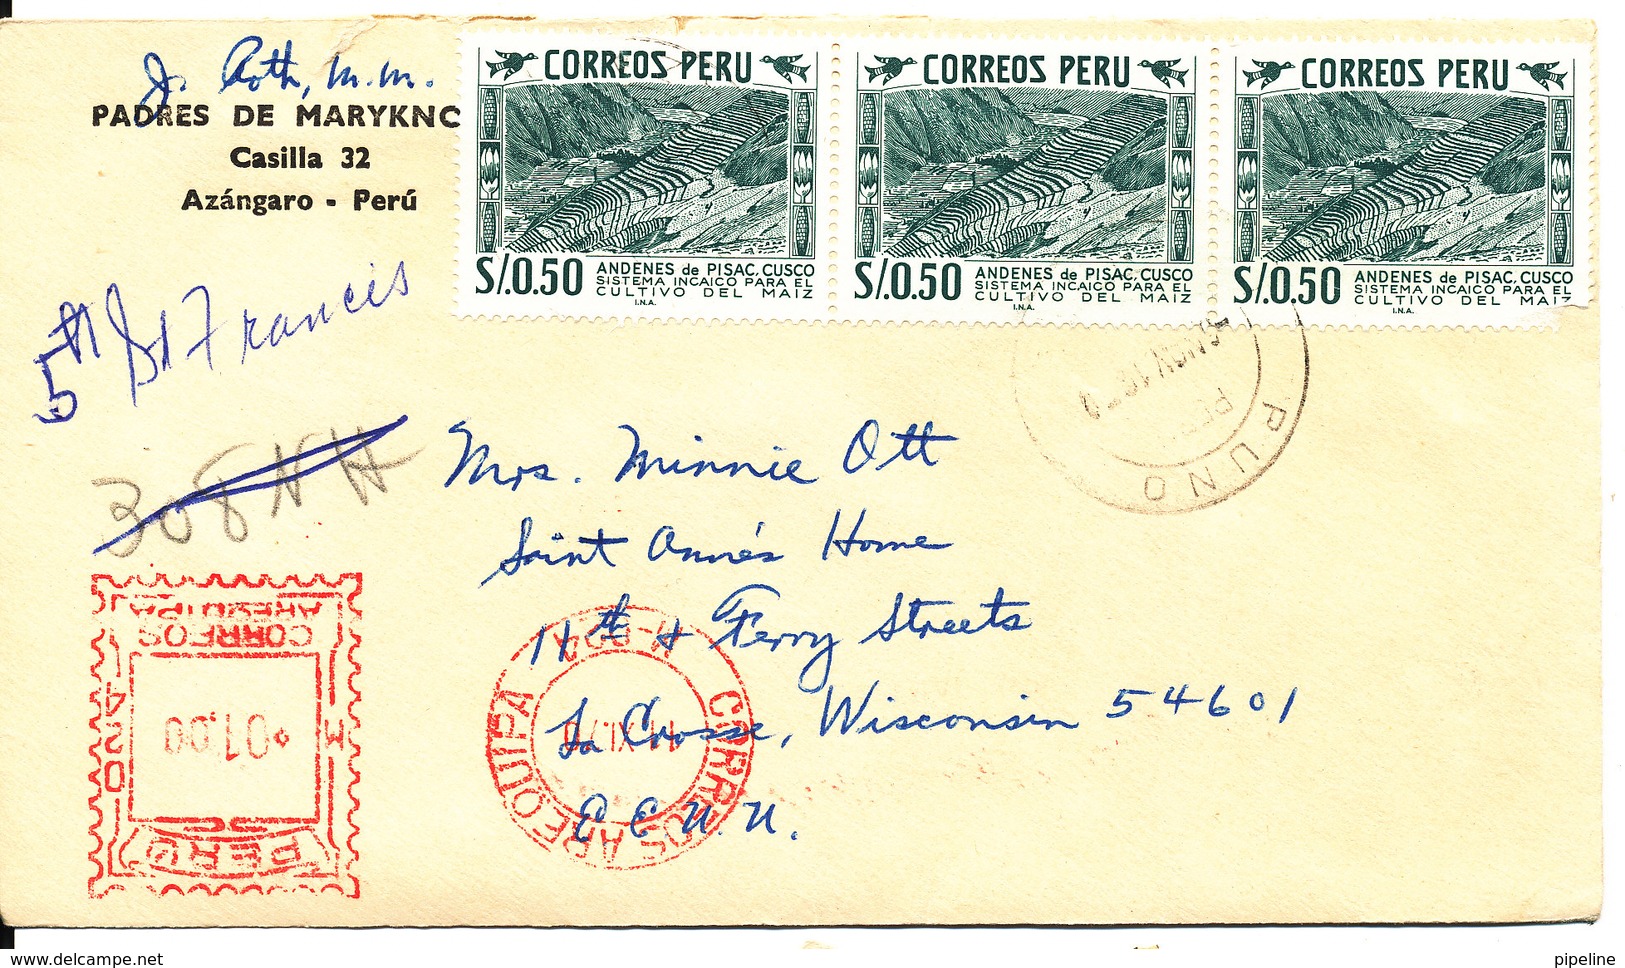 J. Roth, M.M.
PADRES DE MARYKNO
Casilla 32
Azángaro - Perú
CORREOS PERU
S/.0.50
ANDENES de PISAC, CUSCO
SISTEMA INCAICO PARA EL
CULTIVO DEL MAIZ
I.N.A.
CORREOS PERU
S/.0.50
ANDENES de PISAC, CUSCO
SISTEMA INCAICO PARA EL
CULTIVO DEL MAIZ
I.N.A.
CORREOS PERU
S/.0.50
ANDENES de PISAC, CUSCO
SISTEMA INCAICO PARA EL
CULTIVO DEL MAIZ
I.N.A.
NOV
PUNO
5th St Francis
308 NH
Mrs. Minnie Ott
Saint Anne's Home
11th & Ferry Streets
La Crosse, Wisconsin 54601
E E. U. U.
PERU
01,00
M
4220
CORREOS
AREQUIPA
CORREOS AREQUIPA
XI.70
pipeline
www.delcampe.net